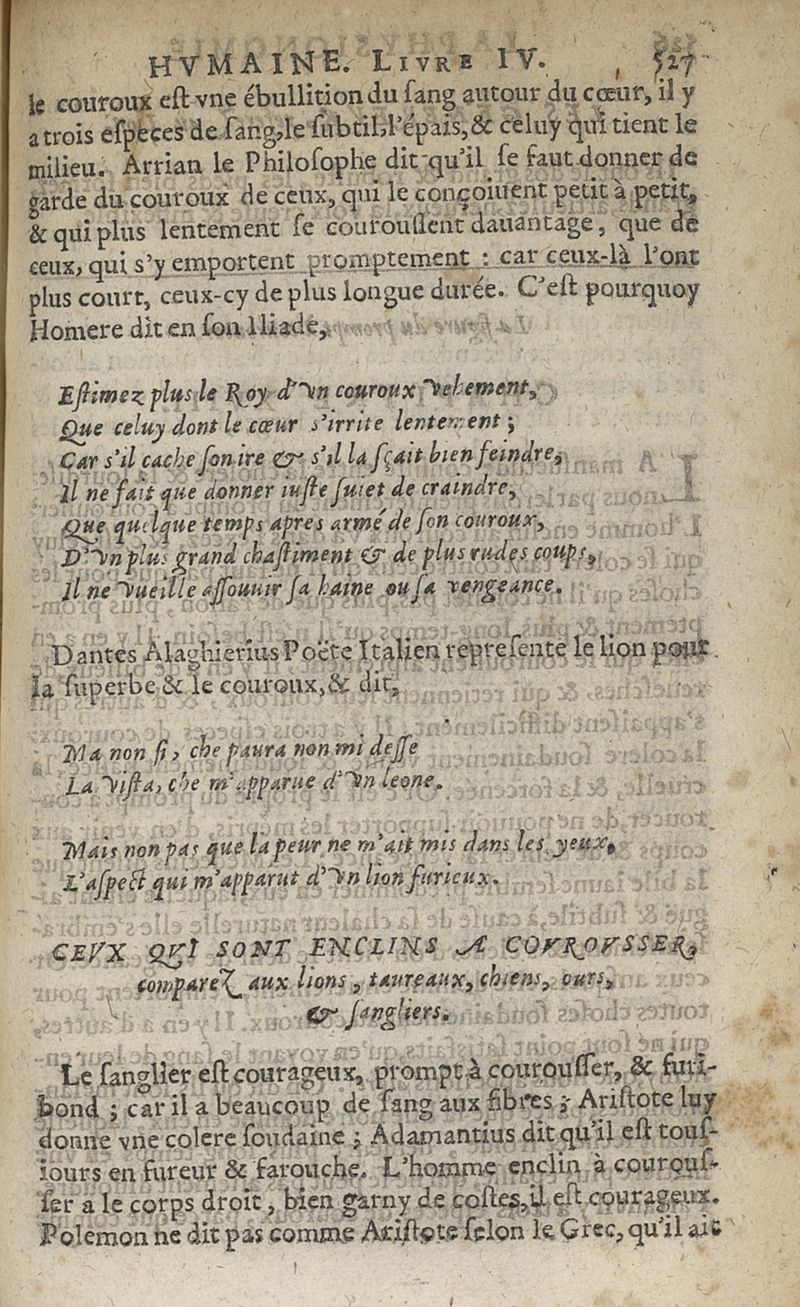 HVMAINE. LIVRE IV. 527
le couroux eſt vne ébullition du ſang autour du cœur, il y
a trois eſpeces de ſang, le ſubtil, l'épais, & celuy qui tient le
milieu. Arrian le Philoſophe dit qu'il ſe faut donner de
garde du couroux de ceux, qui le conçoiuent petit à petit,
& qui plus lentement ſe courouſſent dauantage, que de
ceux, qui s'y emportent promptement : car ceux-là l'ont
plus court, ceux-cy de plus longue durée. C'eſt pourquoy
Homere dit en ſon Iliade,
Eſtimez plus le Roy d'vn couroux vehement,
Que celuy dont le cœur s'irrite lentement ;
Car s'il cache ſon ire & s'il la ſçait bien feindre,
Il ne fait que donner iuſte ſuiet de craindre,
Que quelque temps apres armé de ſon couroux,
D'vn plus grand chaſtiment & de plus rudes coups,
Il ne vueille aſſouuir ſa haine ou ſa vengeance.
Dantes Alaghierius Poëte Italien repreſente le lion pour
la ſuperbe & le couroux, & dit,
Ma non ſi, che paura non mi deſſe
La viſta, che m'apparue d'vn leone.
Mais non pas que la peur ne m'ait mis dans les yeux,
L'aſpect qui m'apparut d'vn lion furieux.
CEVX QVI SONT ENCLINS A COVROVSSER,
comparez aux lions, taureaux, chiens, ours,
& ſangliers.
Le ſanglier eſt courageux, prompt à courouſſer, & furi-
bond ; car il a beaucoup de ſang aux fibres ; Ariſtote luy
donne vne colere ſoudaine ; Adamantius dit qu'il eſt touſ-
iours en fureur & farouche. L'homme enclin à courouſ-
ſer a le corps droit, bien garny de coſtes, il eſt courageux.
Polemon ne dit pas comme Ariſtote ſelon le Grec, qu'il ait